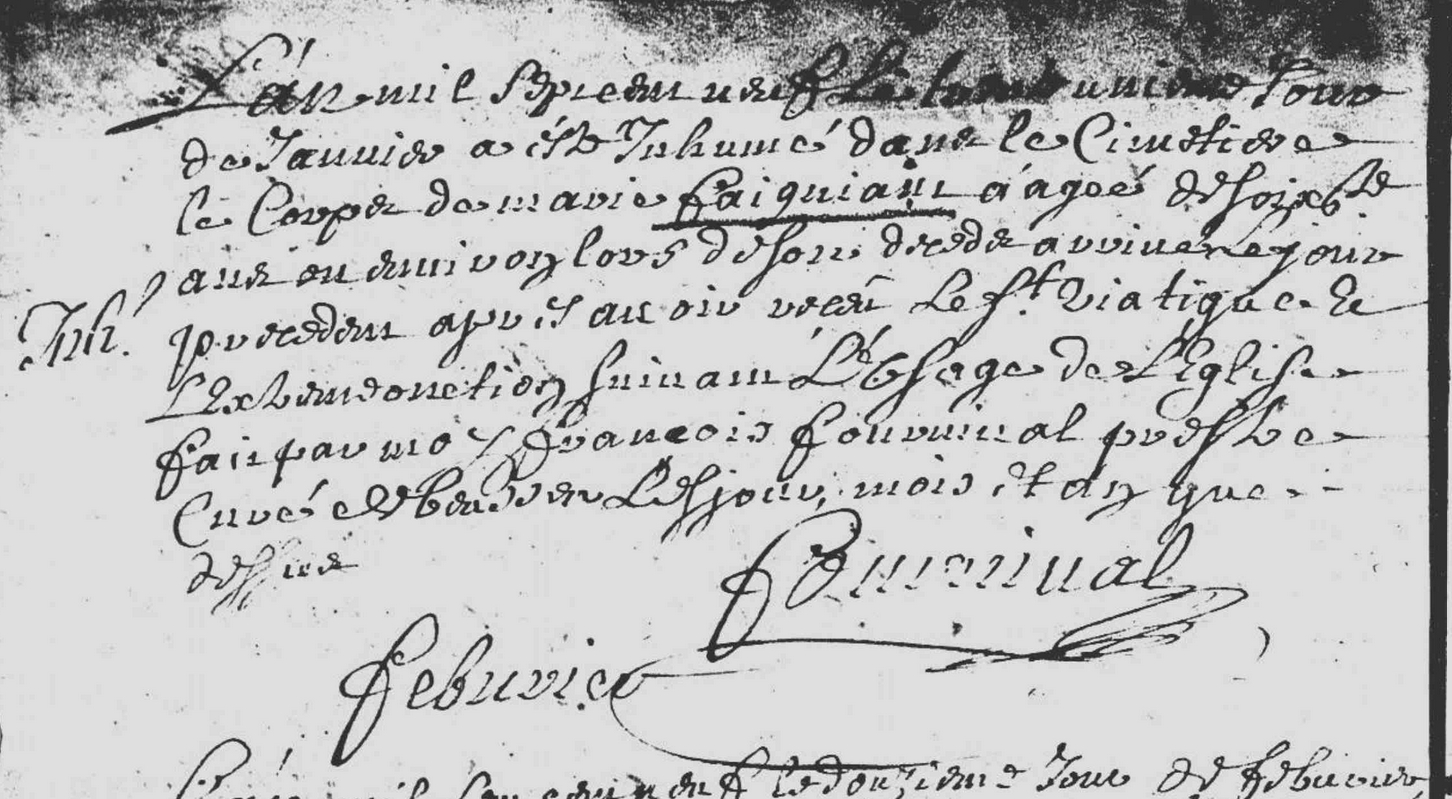 L'án mil sept cent neuf Le trente unieme Jour
de Janvier a été Inhumé dans le Cimetiere
le Corps de marie faiquiant a'ageé de soix.te
ans ou environ lors de son decedz arrivé Le jour
Inh. precedent aprés auoir receu Le St Viatique &
L'Extremeonction suivant L'Vsage de L'Eglise
fait par moy françois fourninal prestre
Curé Les jour, mois et an que
dessus
fourninal
febuvier
L'án mil sept cent neuf le douzieme Jour de febuvier